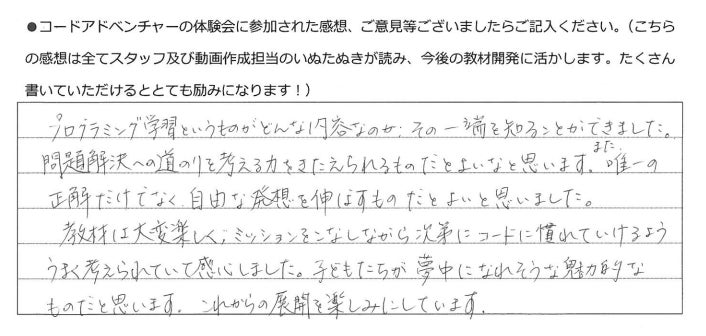 ●コードアドベンチャーの体験会に参加された感想、ご意見等ございましたらご記入ください。（こちら
の感想は全てスタッフ及び動画作成担当のいぬたぬきが読み、今後の教材開発に活かします。たくさん
書いていただけるととても励みになります！）
プログラミング学習というものがどんな内容なのか、その一端を知ることができました。
問題解決への道のりを考える力をきたえられるものだとよいなと思います。また、唯一の
正解だけでなく、自由な発想を伸ばすものだとよいと思いました。
教材は大変楽しく、ミッションをこなしながら次第にコードに慣れていけるよう
うまく考えられていて感心しました。子どもたちが夢中になれそうな魅力的な
ものだと思います。これからの展開を楽しみにしています。